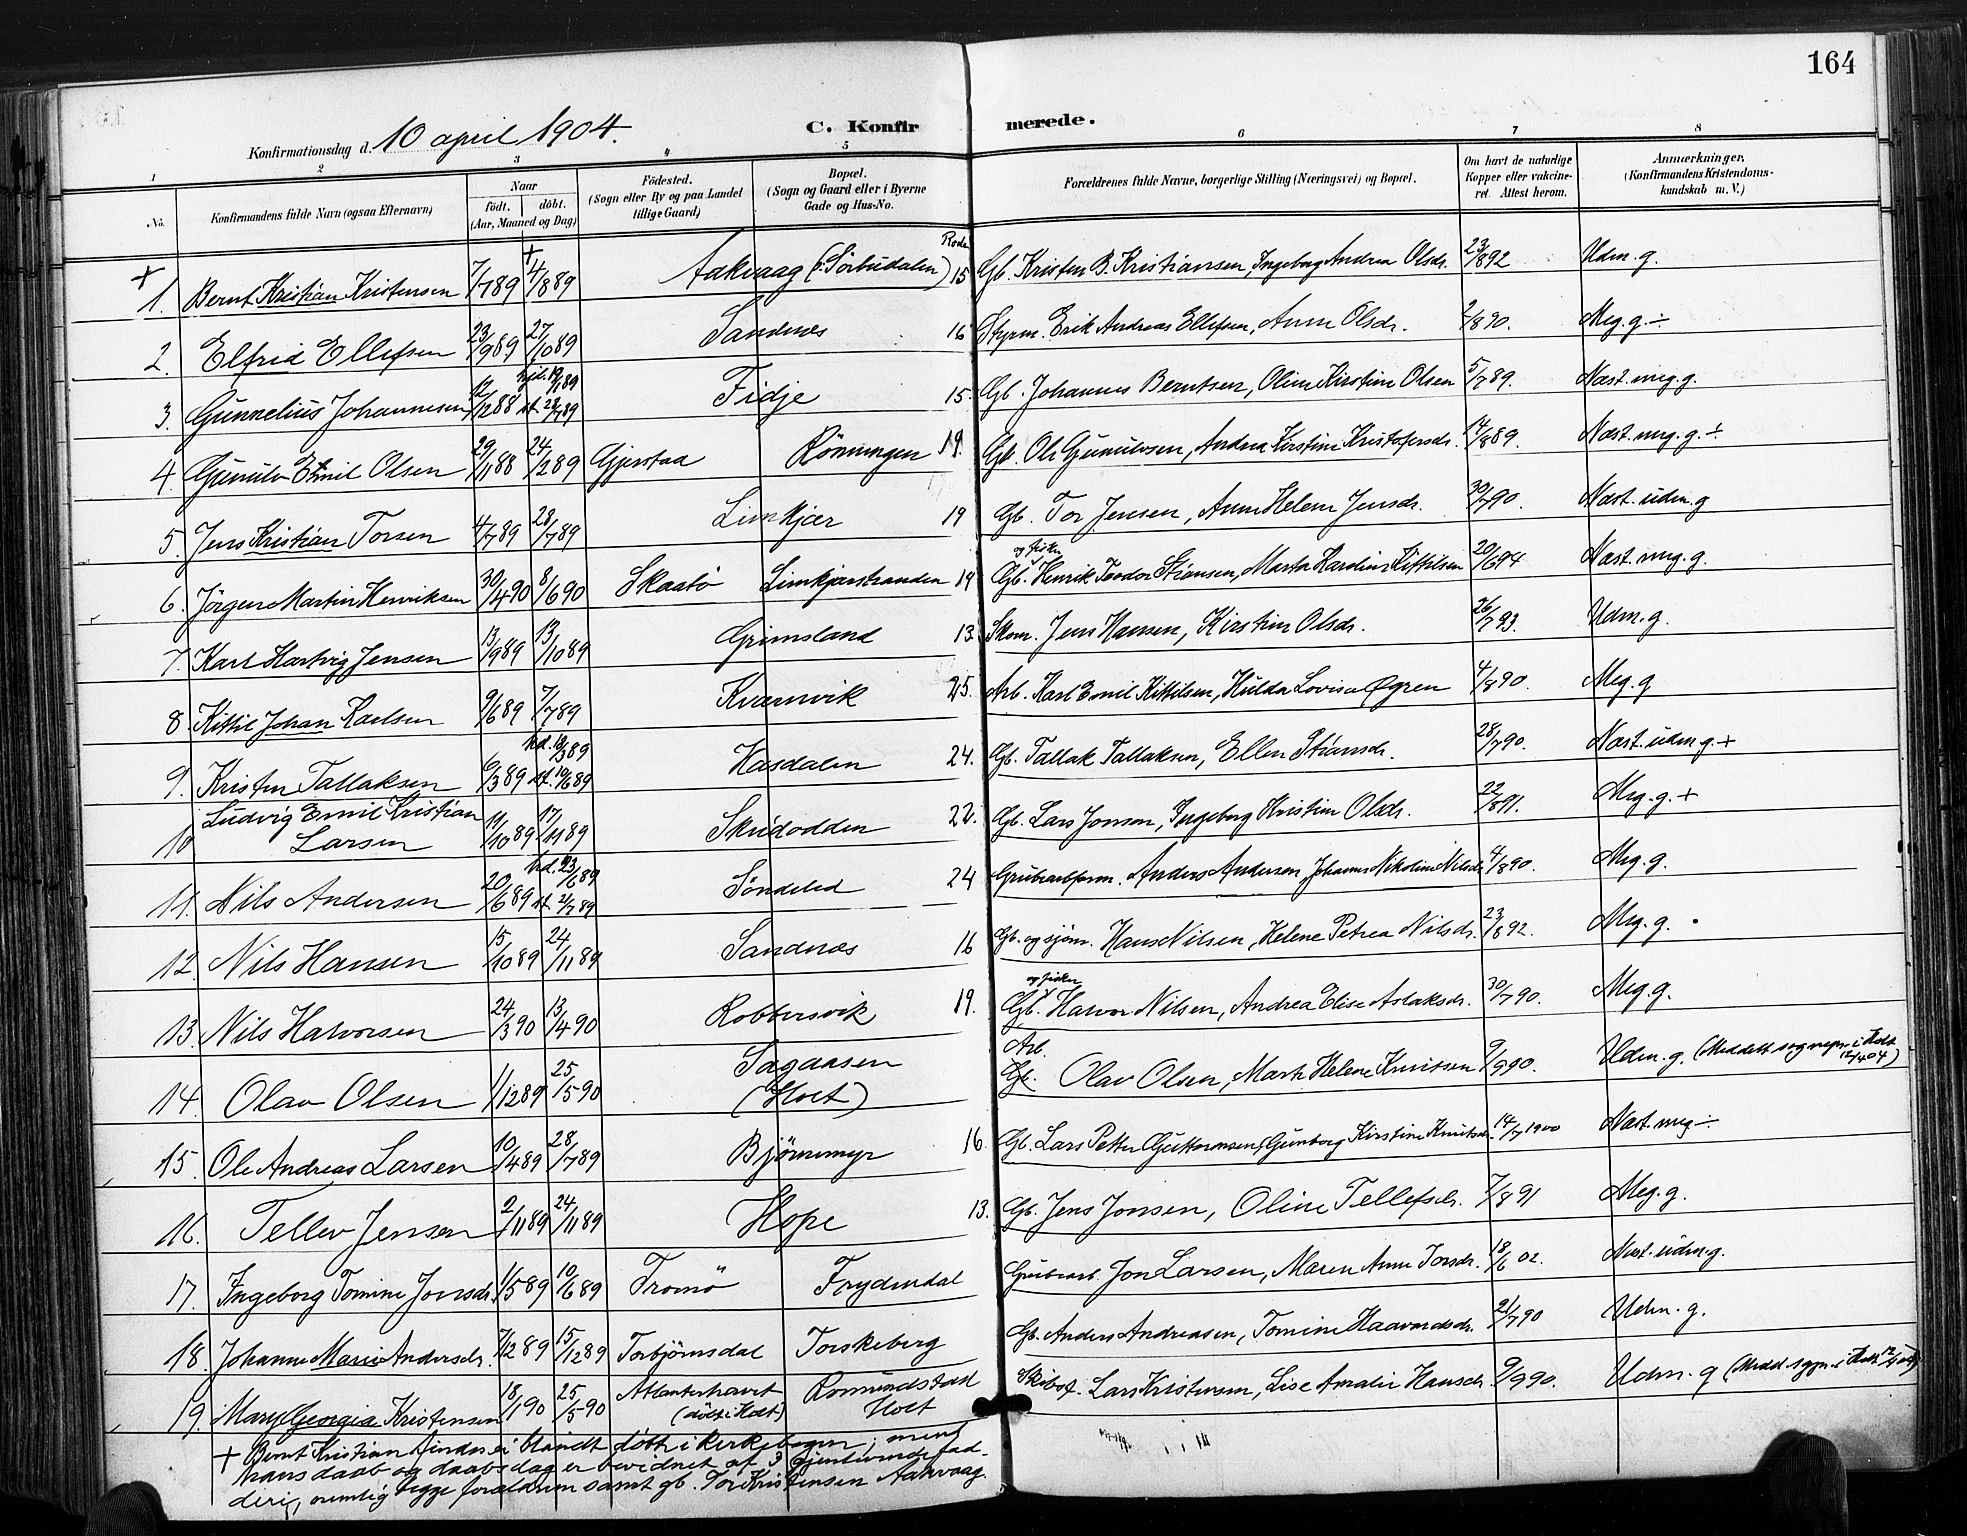 164
Konfirmationsdag d. 10 april 1904.
C. Konfirmerede.
1 2 3 4 5 6 7 8
No.
Konfirmandens fulde Navn (ogsaa Efternavn)
Naar
födt. döbt.
(Aar, Maaned og Dag)
Födested.
(Sogn eller By og paa Landet tillige Gaard)
Bopæl.
(Sogn og Gaard eller i Byerne Gade og Hus-No.
Forældrenes fulde Navne, borgerlige Stilling (Næringsvei) og Bopæl.
Om havt de naturlige Kopper eller vakcineret. Attest herom.
Anmærkninger.
(Konfirmandens Kristendomskundskab m. V.)
Rode
+ 1. Bernt Kristian Kristensen 7/7 89 + 4/8 89 Aakvaag (i Sörbudalen) 15 Gb. Kristen B. Kristiansen, Ingeborg Andrea Olsdr. 23/8 92 Udm. g.
2. Elfrid Ellefsen 23/9 89 27/10 89 Sandnæs 16 Styrm. Erik Andreas Ellefsen, Anne Olsdr. 2/8 90. Meg. g. ÷
3. Gunnelius Johannesen 12/12 88 hjd. 19/1 89 st. 28/7 89 Fidje 15. Gb. Johannes Berntsen, Oline Kirstine Olsen 5/7 89. Næst. meg. g.
4. Gunulv Emil Olsen 29/11 88 24/2 89 Gjerstad Rönningen 19. Gb. Ole Gunulvsen, Andrea Kirstine Kristofersdr. 17/8 89. Næst. meg. g. ÷
5. Jens Kristian Torsen 4/7 89 28/7 89 Limkjær 19 Gb. Tor Jensen, Anne Helene Jensdr. 30/7 90. Næst. udm. g
6. Jörgen Martin Henriksen 30/4 90 8/6 90 Skaatö Limkjærstranden 19 Gb. og fisker Henrik Teodor Stiansen, Marta Karoline Kittilsen 20/6 94 Næst. meg. g.
7. Karl Hartvig Jensen 13/9 89 13/10 89 Grimsland 13. Skom. Jens Hansen, Kirstine Olsdr. 26/7 93. Udm. g.
8. Kittil Johan Karlsen 9/6 89 7/7 89 Kvarnvik 25. Arb. Karl Emil Kittilsen, Hulda Lovisa Øgren 4/8 90. Meg. g
9. Kristen Tallaksen 6/3 89 hd. 13/3 89 st. 10/6 89 Hasdalen 24. Gb. Tallak Tallaksen, Ellen Stiansdr. 28/7 90. Næst. udm. g. +
10 Ludvig Emil Kristian Larsen 11/10 89 17/11 89 Skudodden 22. Gb. Lars Jonsen, Ingeborg Kristine Olsdr. 22/8 91. Meg. g. +
11. Nils Andersen 20/6 89 hd. 23/6 89 st. 2/7 89 Söndeled 24 Grubearbform. Anders Andersen Johanne Nikoline Nilsdr. 4/8 90. Meg. g.
12. Nils Hansen 15/10 89 24/11 89 Sandnæs 16 Gb. og sjöm. Hans Nilsen, Helene Petrea Nilsdr. 23/8 92. Meg. g.
13. Nils Halvorsen 24/3 90 13/4 90 Robbersvik 19. Gb. og fisker Halvor Nilsen, Andrea Elise Aslaksdr. 30/7 90. Meg. g.
14. Olav Olsen 1/12 89 25/5 90 Sagaasen (Holt) Arb. Gb. Olav Olsen, Marte Helene Knutsen 9/9 90. Udm. g. (Meddelt sognepr. i Holt 12/4 04)
15. Ole Andreas Larsen 10/4 89 28/7 89 Björnemyr 16. Gb. Lars Petter Guttormsen, Gunborg Kirstine Knutsdr. 14/7 1900 Næst. meg ÷
16. Tellev Jensen 2/11 89 24/11 89 Hope 13. Gb. Jens Jonsen, Oline Tellefsdr. 7/8 91 Meg. g.
17. Ingeborg Tomine Jonsdr. 1/5 89 10/6 89 Tromö Frydendal Grubearb. Jon Larsen, Maren Anne Torsdr. 18/6 02. Næst. udm. g.
18. Johanne Marie Andersdr. 7/12 89 15/12 89 Torbjörnsdal Torskeberg Gb. Anders Andreasen, Tomine Haavardsdr. 21/7 90 Udm. g.
19. Mary Georgia Kristensen 18/1 90 25/5 90 Atlanterhavet (döbt i Holt) Romundstad Holt Skibsf. Lars Kristensen, Lise Amalie Hansdr. 9/9 90. Udm. g (Medd. sogpr. i Holt 12/4 04)
+ Bernt Kristian findes ei blandt döbte i kirkebogen; men
hans daab og daabsdag er bevidnet af 3 tjenlevende fad-
dere, nemlig begge forældrene samt gb. Tor Kristensen Aakvaag.